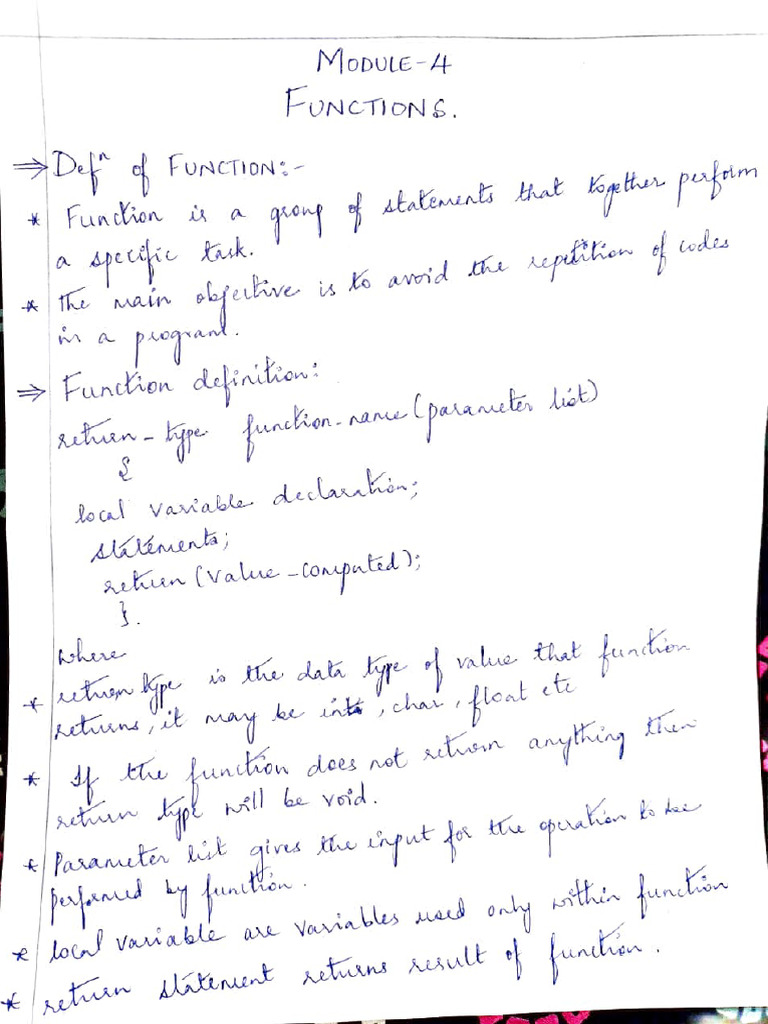 MODULE-4
FUNCTIONS.
⇒ Defⁿ of FUNCTION:-
* Function is a group of statements that together perform
a specific task.
* The main objective is to avoid the repetition of codes
in a program.
⇒ Function definition:
return-type function-name (parameter list)
{
local variable declaration;
statements;
return (value-computed);
}.
where
* return type is the data type of value that function
returns, it may be int, char, float etc
* If the function does not return anything then
return type will be void.
* Parameter list gives the input for the operation to be
performed by function.
* local variable are variables used only within function
* return statement returns result of function.